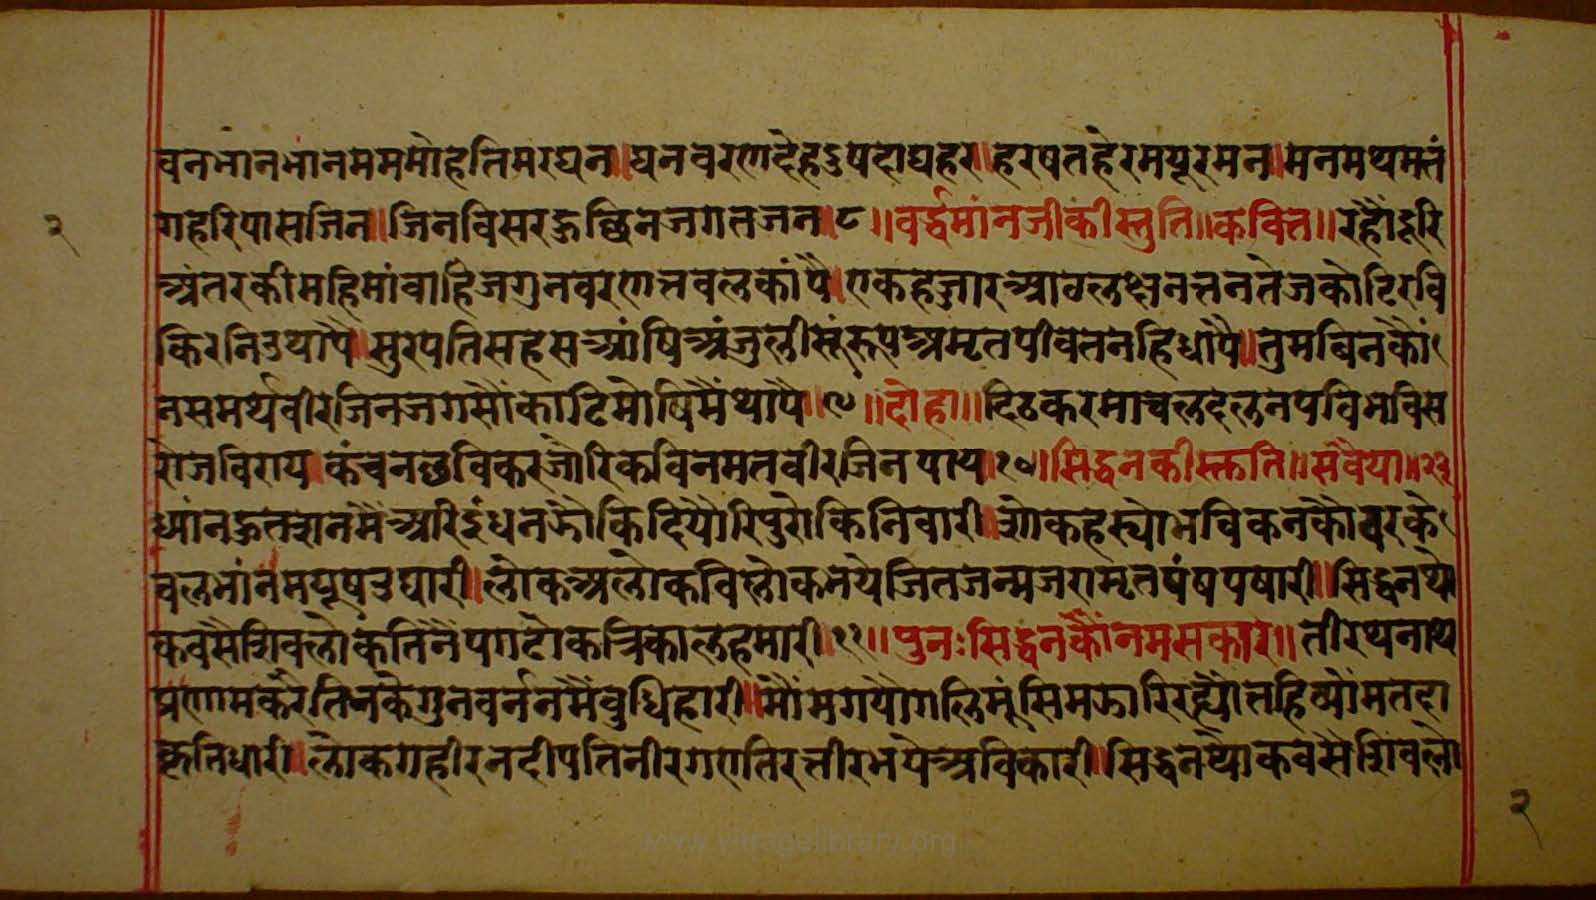 वनभानभानमममोहतिमरघन॥घनवरणदेहदुषदाघहर॥हरषतहेरमयूरमन॥मनमथमतं
गहरिपासजिन॥जिनविसरहुछिनजगतजन॥८॥वर्द्धमांनजीकीस्तुति॥कवित्त॥रहौदूरि
अंतरकीमहिमांवाहिजगुनवरणनवलकांपै॥एकहजारआठलछनतनतेजकोटिरवि
किरनिउथापै॥सुरपतिसहसआंषिअंजुलीसूंरूपअमृतपीवतनहिधापै॥तुमबिनकौं
नसमर्थवीरजिनजगसौंकाटिमोषिमैंथापै॥९॥दोहा॥दिढकरमाचलदलनपविभविस
रोजविराय॥कंचनछविकरजौरिकविनमतवीरजिनपाय॥१०॥सिद्धनकीस्तुति॥सवैया॥२३
ध्यांनहुतासनमैंअरिइंधनझोकिदियौरिपुरोकिनिवारी॥सोकहस्योभविकनकौवरके
वलभांनमयूषउघारी॥लोकअलोकविलोकभयेजितजन्मजरामृतपंषपषारी॥सिद्धनथो
कवसैशिवलोकतिनैंपगटोकत्रिकालहमारी॥११॥पुनःसिद्धनकौंनमसकार॥तीरथनाथ
प्रणामकरैतिनकेगुनवर्ननमैंबुधिहारी॥मौंमगयौगलिमूंसिमझारिरह्यौतहिव्यौंमतदा
कृतिधारी॥लोकगहीरनदीपतिनीरगएतिरतीरभयेअविकारी॥सिद्धनथोकवसैशिवलो
२
२
www.vitragelibrary.org